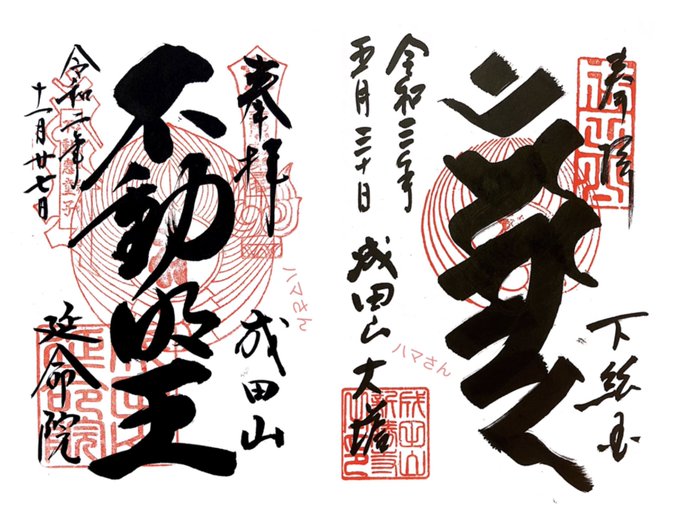 奉拝
不動明王
成田山
令和二年
十一月廿七日
延命院
ハマさん
奉拝
下総国
令和三年
五月三十日
成田山大塔
ハマさん